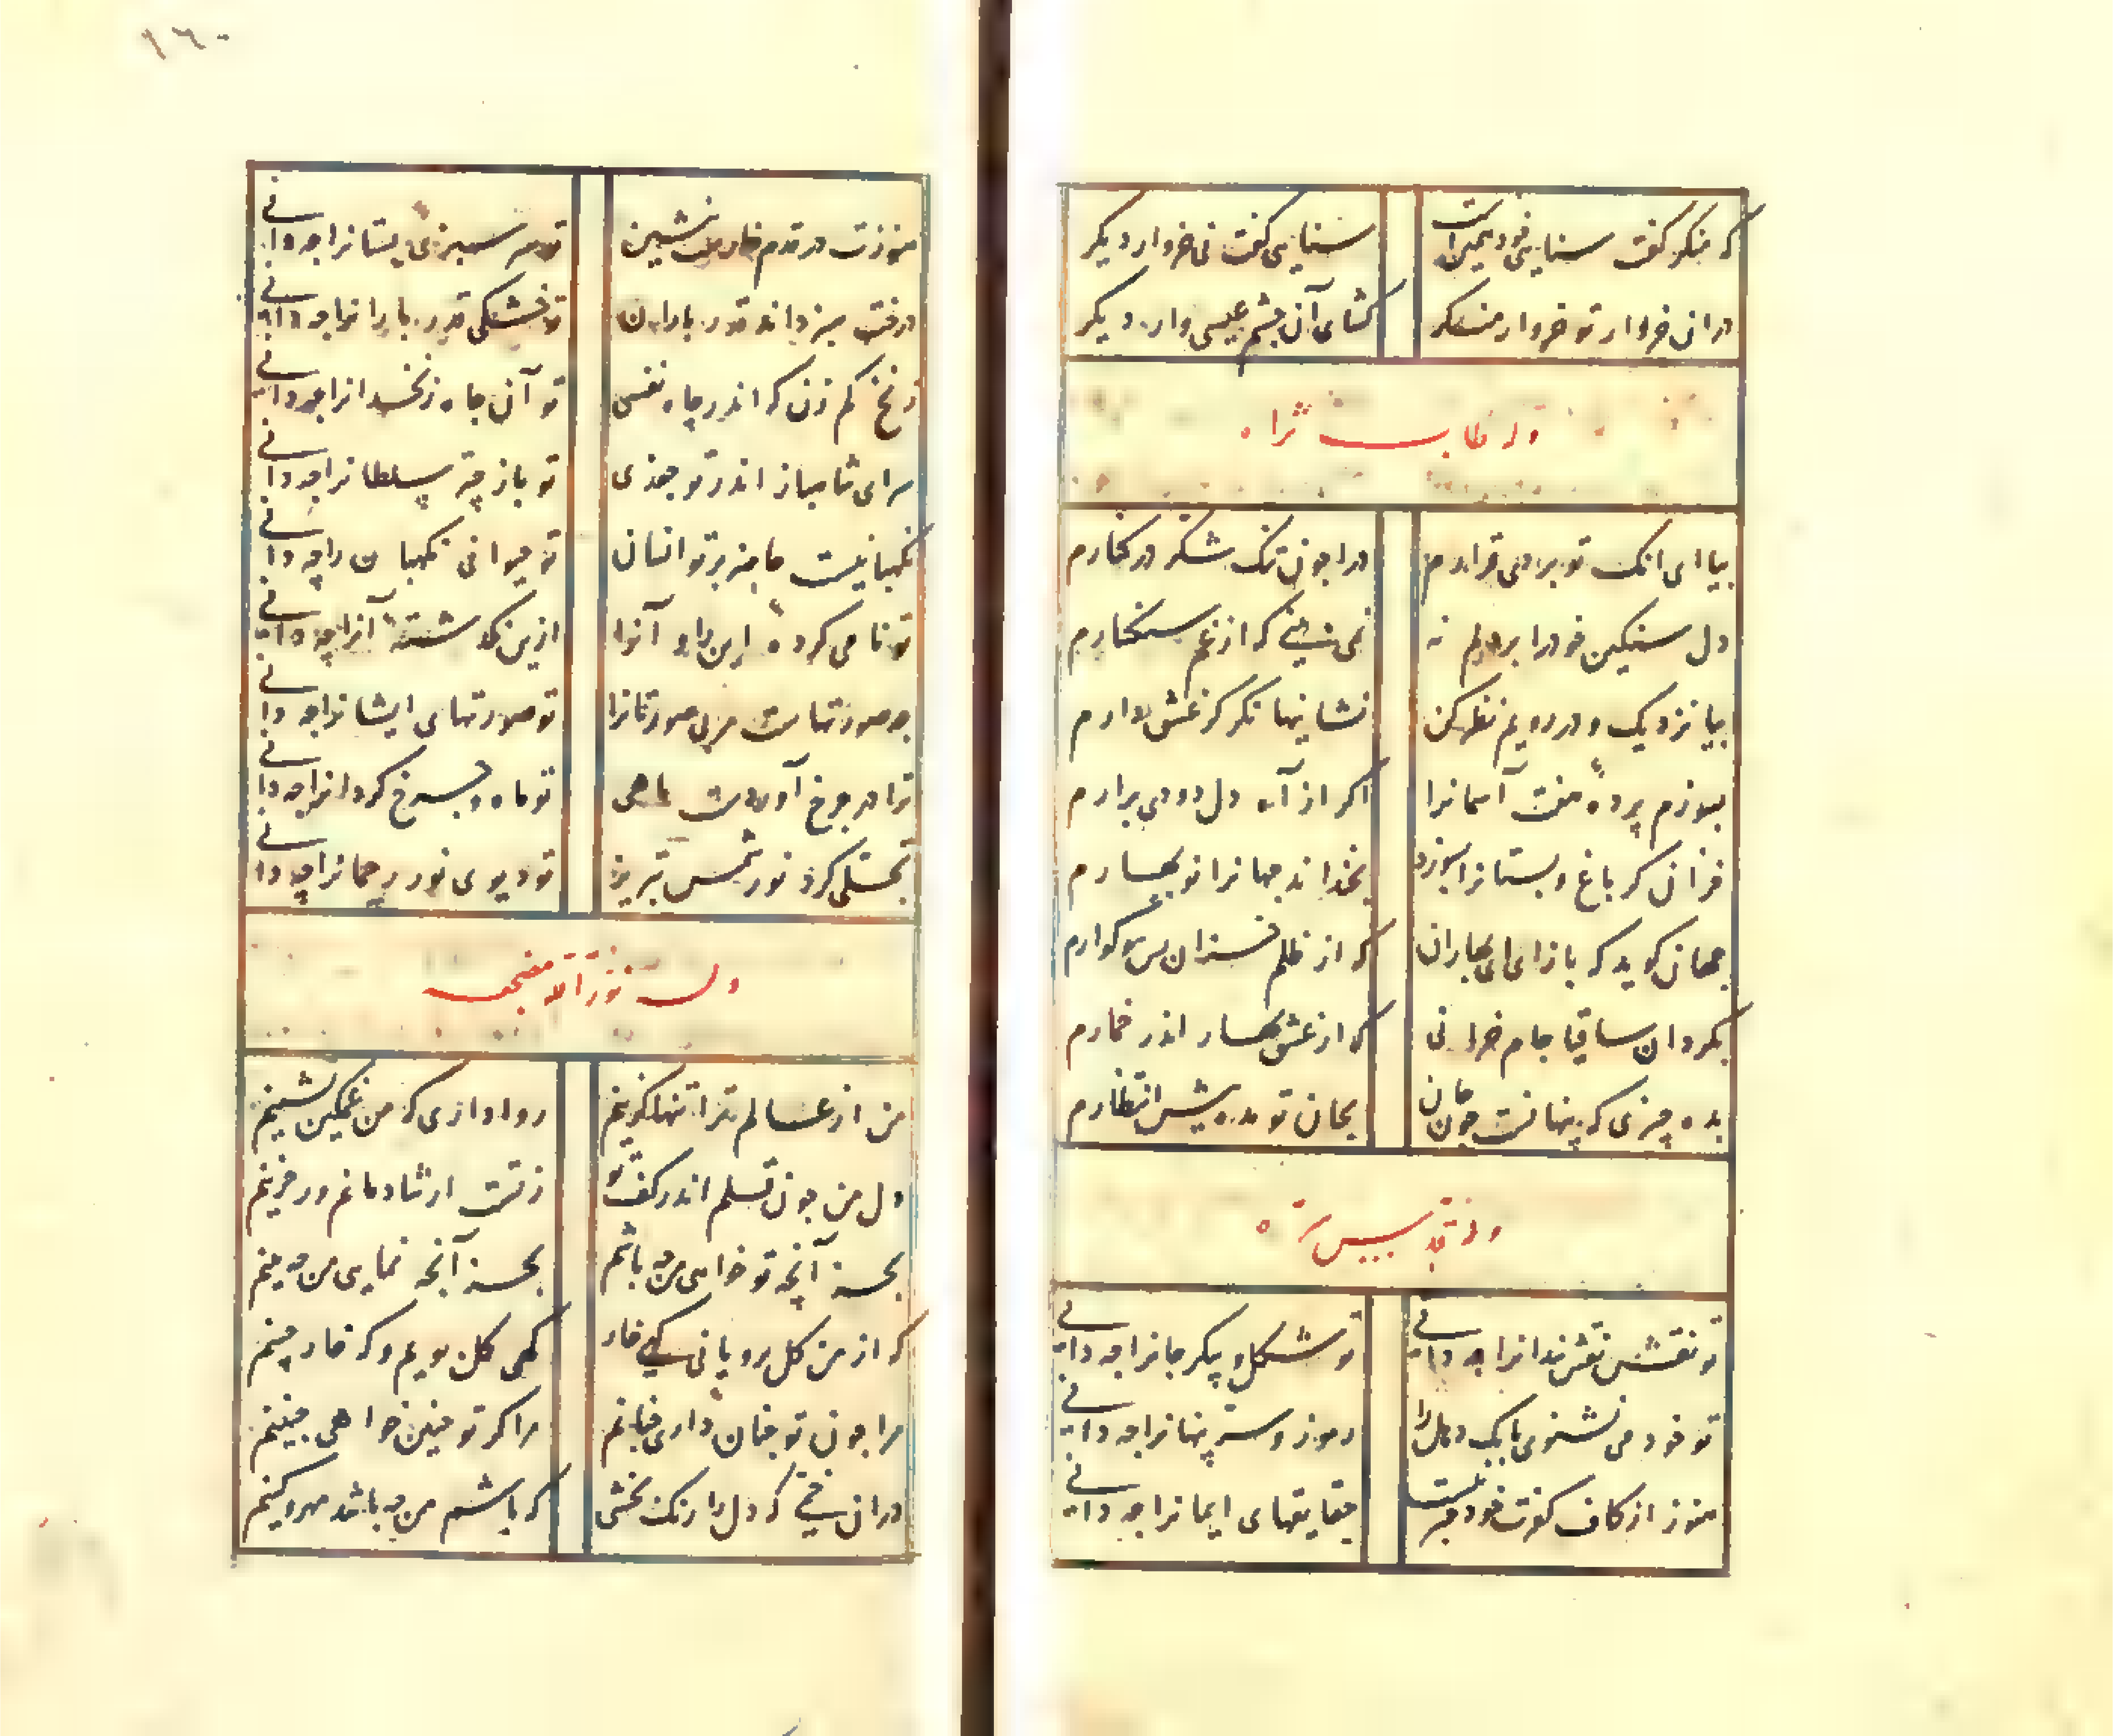 که منکر گفت سنایی خود همین است
سنایی گفت نی خروار دیگر
در آن خروار تو خروار منگر
گشای آن چشم عیسی وار دیگر
وله طاب ثراه
بیا ای آنک تو بردی قرارم
درا چون تنگ شکر در کنارم
دل سنگین خود را بر دلم نه
نمی بینی که از غم سنگسارم
بیا نزدیک و در رویم نظر کن
نشانیها نگر کز عشق دارم
بسوزم پرده هفت آسمانرا
اگر از آه دل دودی برآرم
خزان گر باغ و بستانرا بسوزد
بخنداند جهانرا نوبهارم
جهان گوید که بازآ ای بهاران
که از ظلم خزان بس سوگوارم
بگردان ساقیا جام خزانی
که از عشق بهار اندر خمارم
بده چیزی که پنهانست چون جان
بجان تو مده بیش انتظارم
وله قدس سره
تو نقشی نقش بندانرا چه دانی
تو شکل و پیکر جانرا چه دانی
تو خود می نشنوی بانک دهل را
رموز و سر پنهانرا چه دانی
هنوز از کاف کفرت خود خبر نیست
حقایقهای ایمانرا چه دانی
١٦٠
هنوزت در قدم خاریست بنشین
تو سر سبزی بستانرا چه دانی
درخت سبز داند قدر باران
تو خشکی قدر بارانرا چه دانی
زنخ کم زن که اندر چاه نفسی
تو آن چاه زنخدانرا چه دانی
سرای شاهباز اندر تو جغدی
تو باز چتر سلطانرا چه دانی
نگهبانیست حاضر بر تو انسان
تو حیوانی نگهبان را چه دانی
تو نامی کرده این را و آنرا
ازین نگذشته آنرا چه دانی
چه صورتهاست مر بی صورتانرا
تو صورتهای ایشانرا چه دانی
ترا در چرخ آوردست ماهی
تو ماه و چرخ گردانرا چه دانی
تجلی کرد نور شمس تبریز
تو دیوی نور رحمانرا چه دانی
وله نور الله مضجعه
من از عالم ترا تنها گزینم
روا داری که من غمگین نشینم
دل من چون قلم اندر کف تو
ز تست ار شادمانم ور حزینم
بجز آنچه تو خواهی من چه باشم
بجز آنچه نمایی من چه بینم
که از من گل برویانی گهی خار
گهی گل بویم و گه خار چینم
مرا چون تو چنان داری چنانم
مرا گر تو چنین خواهی چنینم
در آن خمی که دل را رنگ بخشی
که باشم من چه باشد مهر و کینم